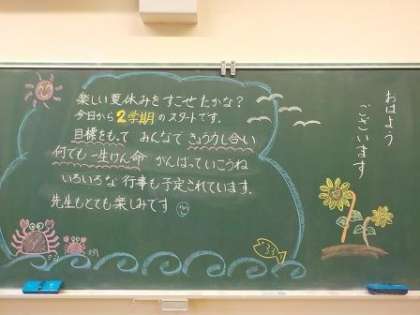 おはよう
ございます
楽しい夏休みをすごせたかな？
今日から2学期のスタートです。
目標をもって みんなで きょう力し合い
何でも一生けん命 がんばっていこうね
いろいろな 行事も予定されています。
先生もとても楽しみです